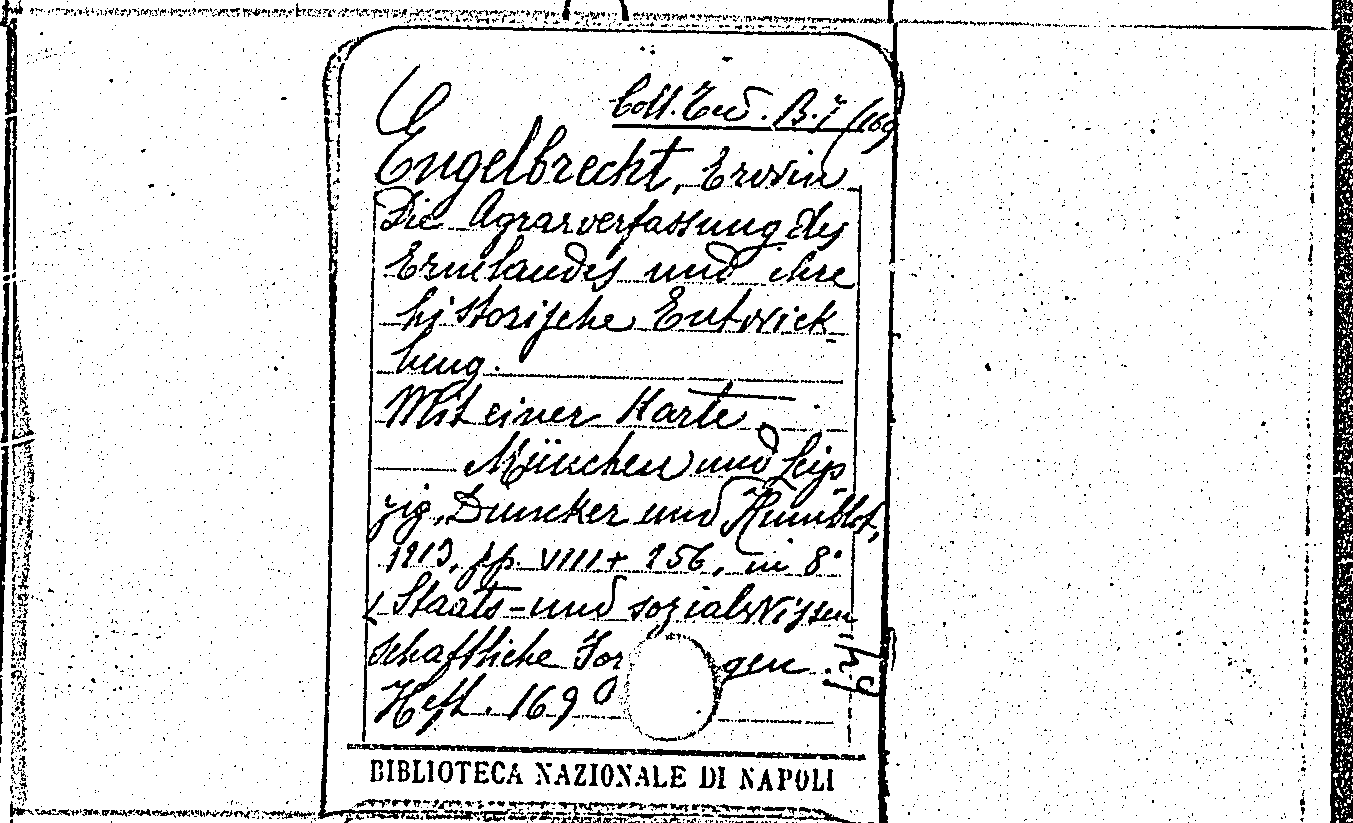 Coll. Ted. B. 7 (169
Engelbrecht, Erwin
Die Agrarverfassung des
Ermlandes und ihre
historische Entwick-
lung.
Mit einer Karte.
München und Leip-
zig, Duncker und Humblot,
1913, pp. VIII + 256, in 8°
(Staats- und sozialwissen
schaftliche For gen
Heft. 169
BIBLIOTECA NAZIONALE DI NAPOLI